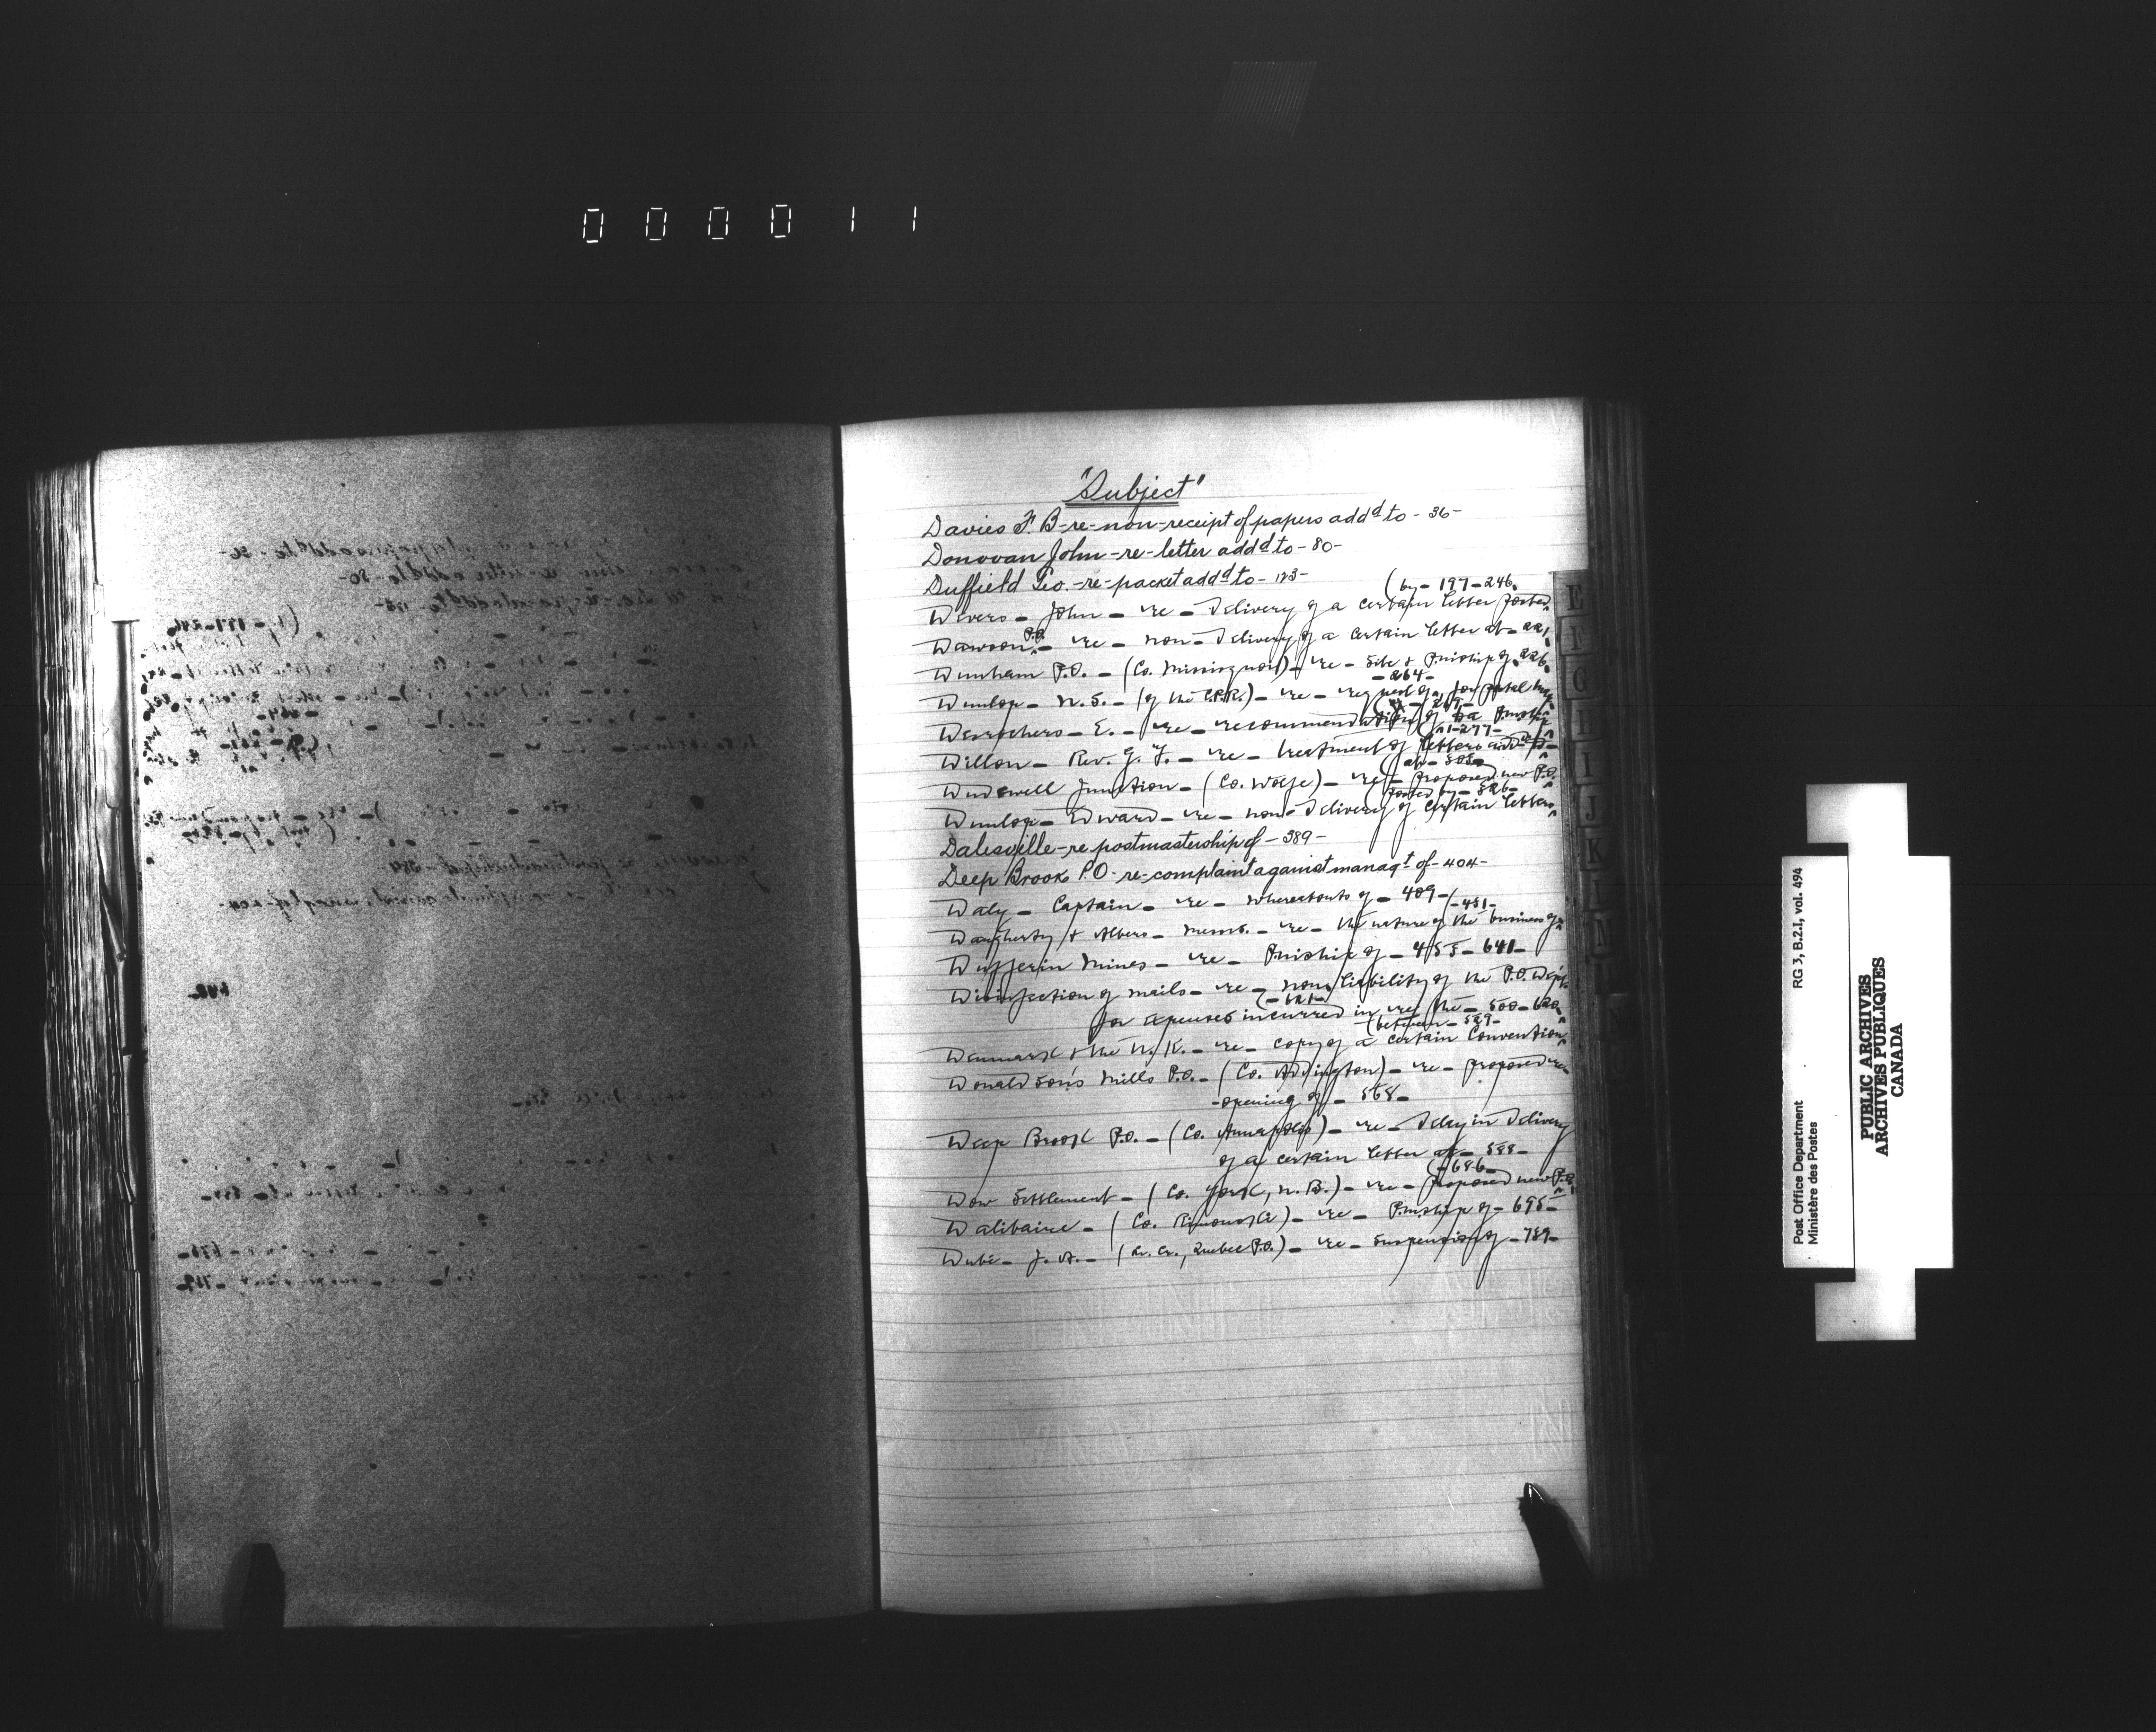 000011
"Subject"
Davies F. B-re-non-receipt of papers add^d to - 36 -
Donovan John - re - letter add^d to - 80 -
Duffield Geo. - re - packet add^d to - 123 -
(by - 197 - 246
Devers - John - re - delivery of a certain letter posted
Dawson P.O. - re - non-delivery of a certain letter at - 221
Dunham P.O. - (Co. Missisquoi) - re - site & P.mship of 226
- 264 -
Dunlop - N. S. - (of the C.P.R.) - re - request of, for postal
Desrochers - E. - re - recommendation of
- 277 -
Dillon - Rev. G. F. - re - treatment of letters add^d to -
Dudswell Junction - (Co. Wolfe) - re - proposed new P.O.
posted by - 326 -
Dunlop - Edward - re - non-delivery of certain letters
Dalesville - re postmastership of - 389 -
Deep Brook P.O - re - complaint against manag^t of - 404 -
Daly - Captain - re - whereabouts of - 409 -
- 451 -
Daugherty & Albers - Messrs. - re - the nature of the business of
Dufferin Mines - re - P.mship of - 455 - 641 -
Disinfection of mails - re - non liability of the P.O. Dep't.
- 621 -
for expenses incurred in re the - 500 - 620
(between - 529 -
Denmark & the U. K. - re - copy of a certain Convention
Donaldson's Mills P.O. - (Co. Addington) - re - proposed re-
-opening of - 568 -
Deep Brook P.O. - (Co. Annapolis) - re - delay in delivery
of a certain letter at - 588 -
(- 686 -
Dow Settlement - (Co. York, N. B.) - re - proposed new P.O.
Dalibaire - (Co. Rimouski) - re - P.mship of - 695 -
Dubé - J. A. - (Quebec P.O.) - re - suspension of - 789 -
E
F
G
H
I
J
K
L
M
N
Post Office Department RG 3, B.2.I, vol. 494
Ministère des Postes
PUBLIC ARCHIVES
ARCHIVES PUBLIQUES
CANADA